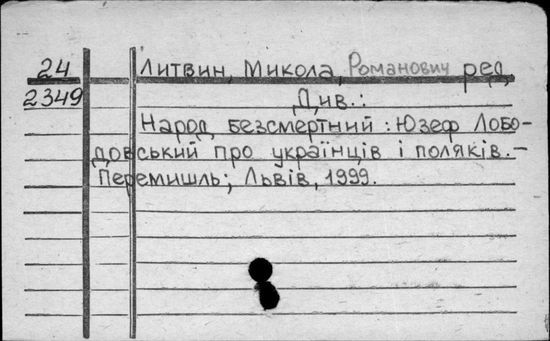 24 Литвин, Микола, Романович ред.
2349 Див.:
Народ безсмертний : Юзеф Лобо-
довський про українців і поляків.-
Перемишль; Львів, 1999.